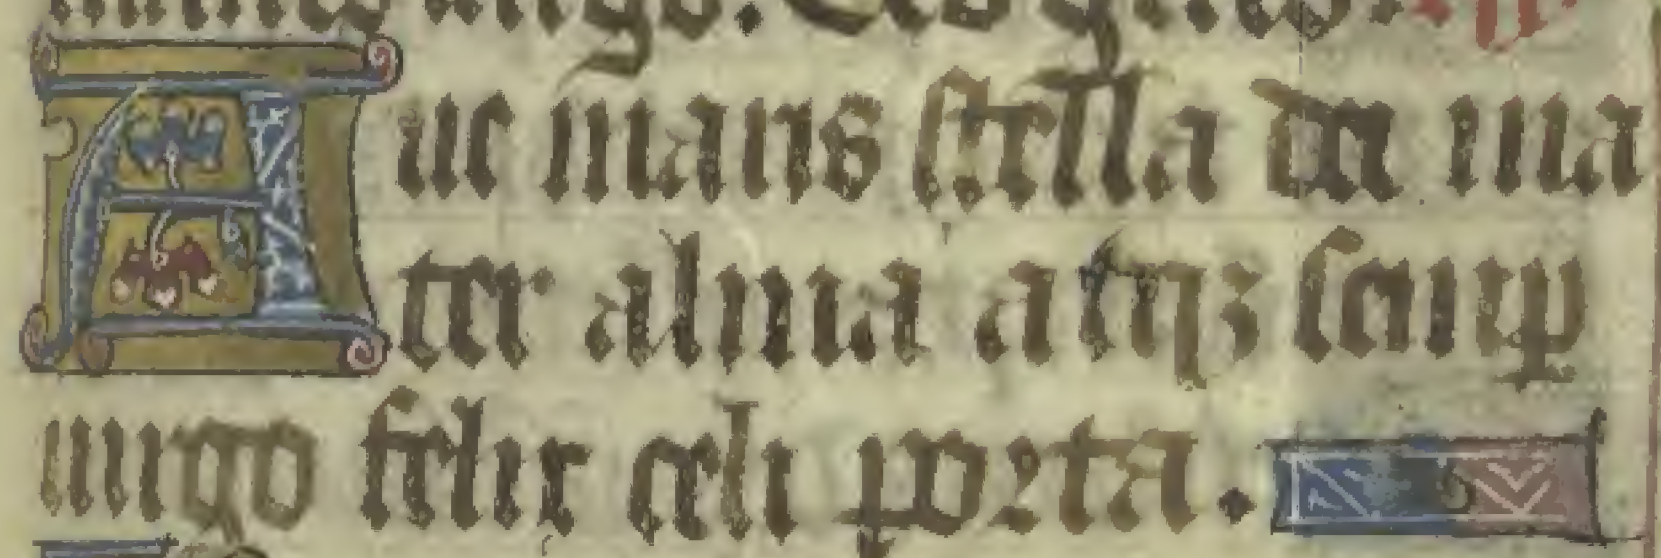 Aue maris stella dei ma
ter alma atqꝫ semꝑ
uirgo felix celi porta.